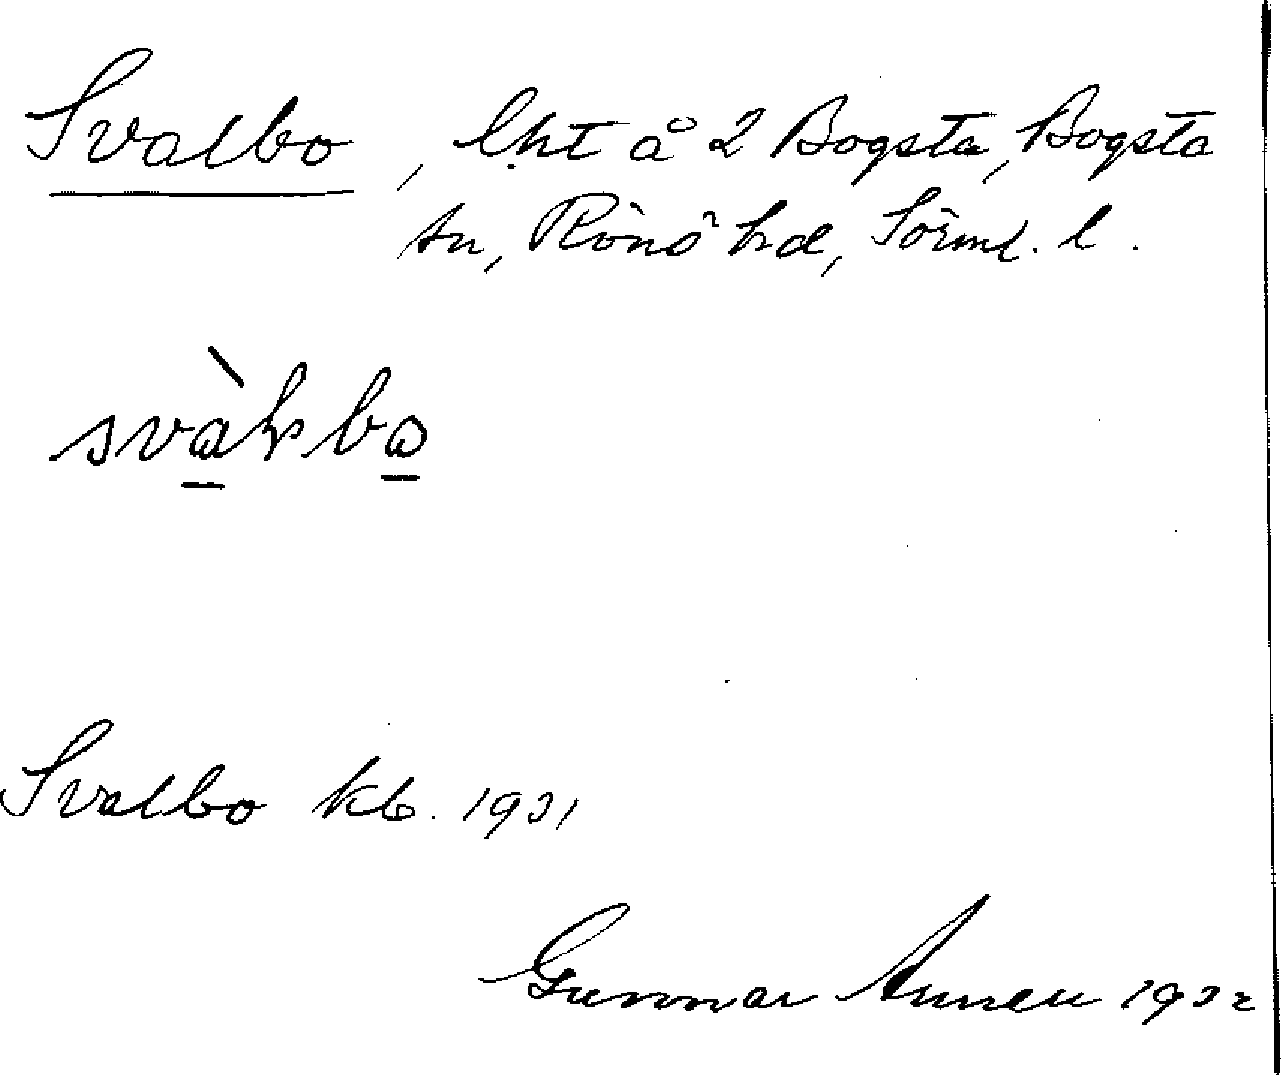 Svalbo, lht å 2 Bogsta, Bogsta
sn, Rönö hd, Sörml. l.
Svalbo kb. 1931
Gunnar 1932